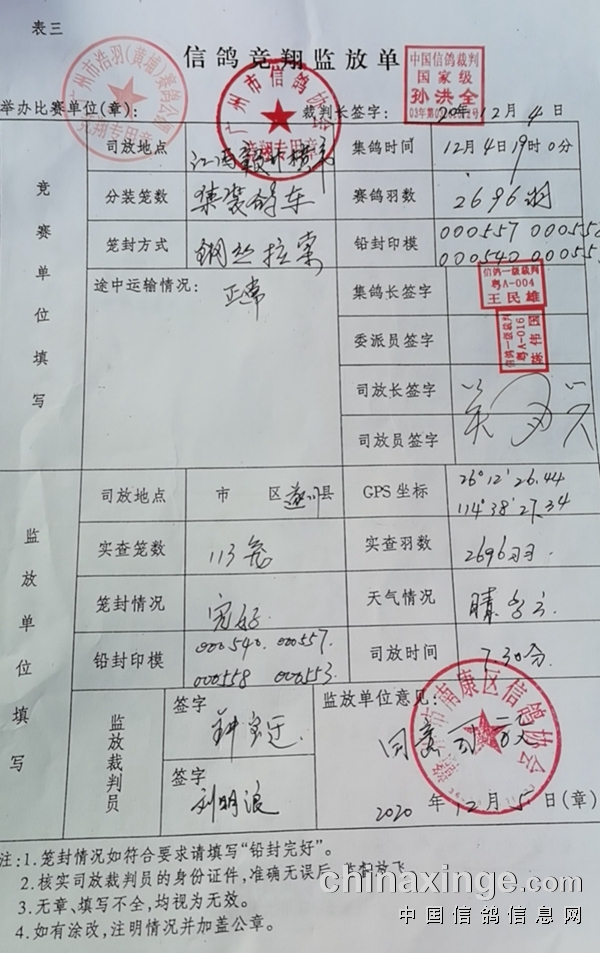 表三
信鸽竞翔监放单
中国信鸽裁判
国家级
孙洪全
广州市浩羽(黄埔)赛鸽公
竞翔专用章
广州市信鸽协会
竞翔专用章
举办比赛单位(章): 裁判长签字: 2020年12月4日
竞赛单位填写
司放地点 江西 集鸽时间 12月4日19时0分
分装笼数 集装鸽车 赛鸽羽数 2696羽
笼封方式 钢丝拉索 铅封印模 000557 000558
000540 000553
途中运输情况: 正常 集鸽长签字
信鸽一级裁判
粤A-004
王民雄
委派员签字
信鸽一级裁判
粤A-016
陈伟国
司放长签字
司放员签字
监放单位填写
司放地点 市 区遂川县 GPS坐标 26°12'26.44
114°38'27.34
实查笼数 113笼 实查羽数 2696羽
笼封情况 完好 天气情况 晴多云
铅封印模 000540. 000557.
000558 000553. 司放时间 7.30分
监放裁判员
签字
签字
刘明浪
监放单位意见:
同意司放
市南康区信鸽协会
2020年12月5日(章)
注:1.笼封情况如符合要求请填写“铅封完好”。
2.核实司放裁判员的身份证件,准确无误后,
3.无章、填写不全,均视为无效。
4.如有涂改,注明情况并加盖公章。
chinaxinge.com
中国信鸽信息网